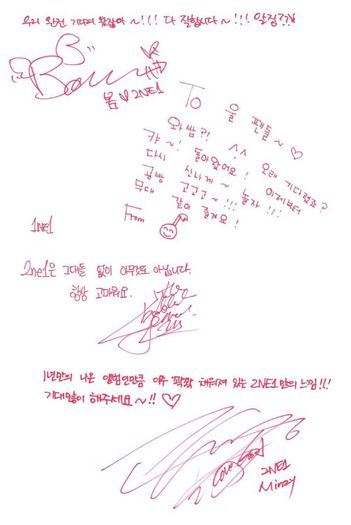 우리 완전 기다려 왔잖아~!!! 다 잘합니다~!!!
Bom
봄 ♡ 2NE1
To 울 팬들~ ♡
와쌉?! ^^
캬~! 돌아왔어요! 오래 기다렸죠?
다시 신나게~ 놀자!!! 이제부터
공방 고고고~!!!
무대 같이 즐겨요!
From
2NE1
2ne1은 그대들 없이 아무것도 아닙니다.
항상 고마워요.
1년만의 나온 앨범인만큼 아주 꽉꽉 채워져 있는 2NE1만의 느낌!!!
기대많이 해주세요~!! ♡
2NE1
Minzy